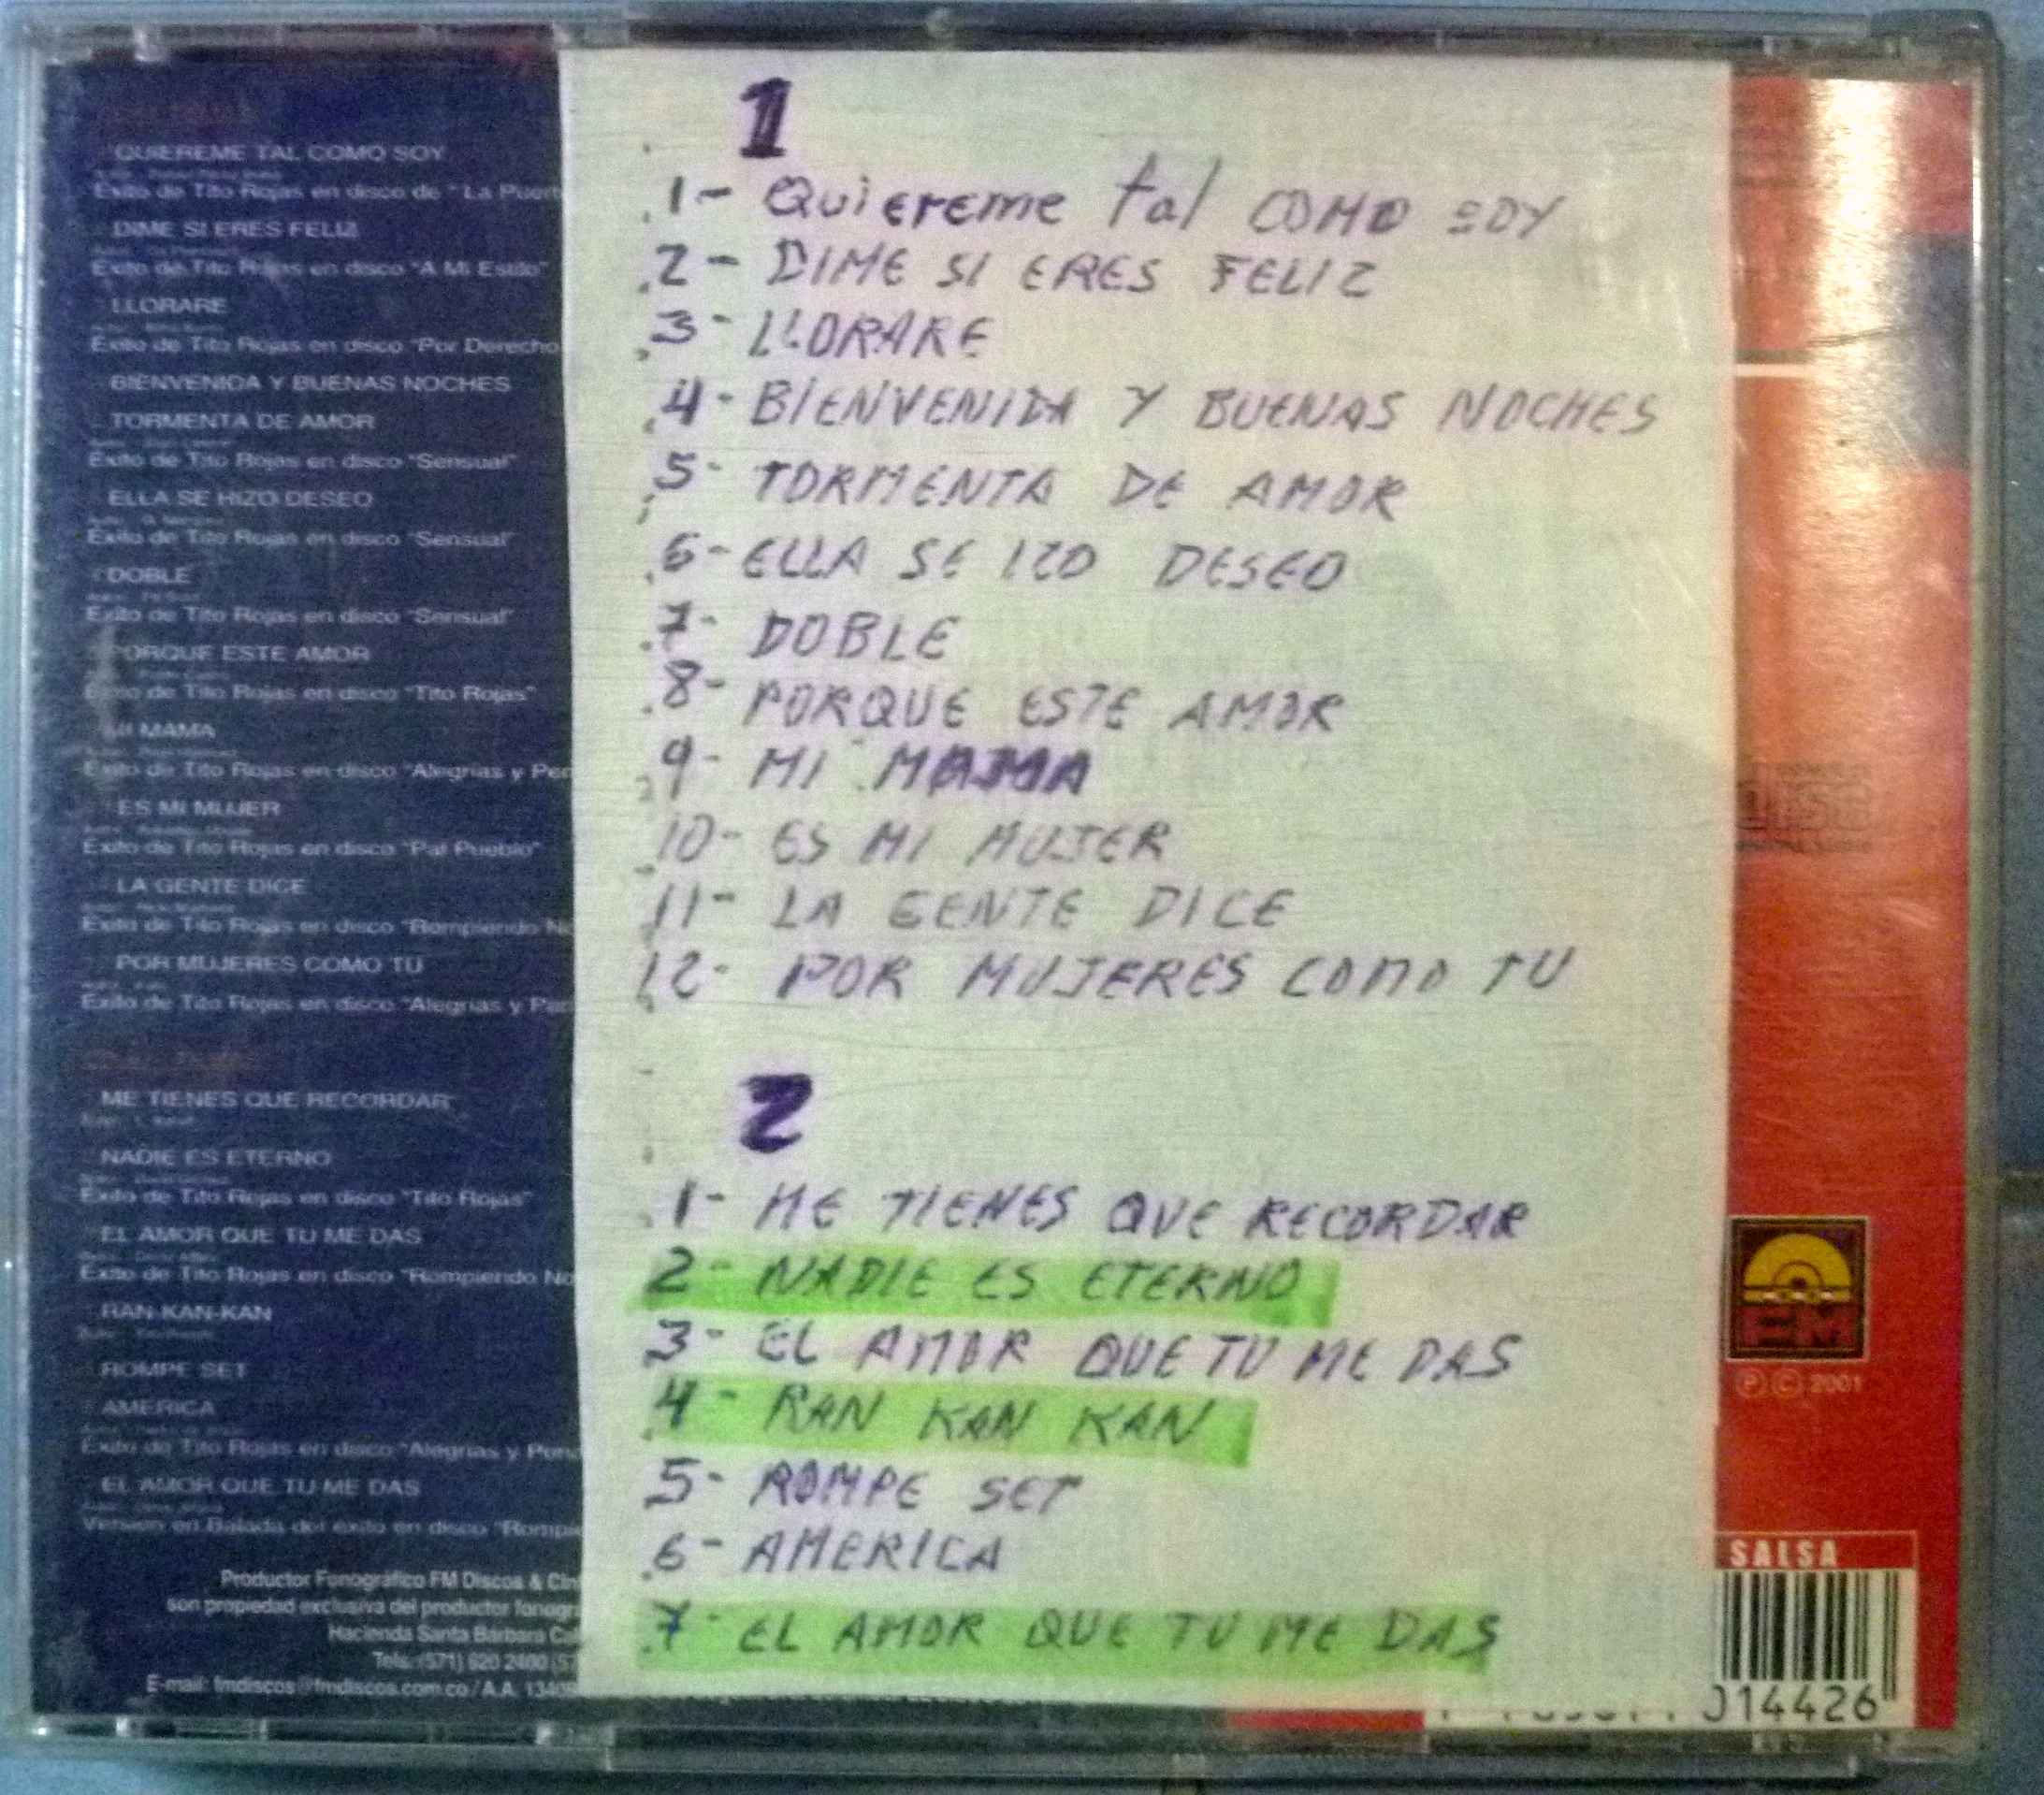 QUIEREME TAL COMO SOY
Exito de Tito Rojas en disco de "La
DIME SI ERES FELIZ
Exito de Tito Rojas en disco "A Mi Estilo"
LLORARE
Exito de Tito Rojas en disco "Por Derecho
BIENVENIDA Y BUENAS NOCHES
TORMENTA DE AMOR
Exito de Tito Rojas en disco "Sensual"
ELLA SE HIZO DESEO
Exito de Tito Rojas en disco "Sensual"
DOBLE
Exito de Tito Rojas en disco "Sensual"
PORQUE ESTE AMOR
Exito de Tito Rojas en disco "Tito Rojas"
MI MAMA
Exito de Tito Rojas en disco "Alegrias y
ES MI MUJER
Exito de Tito Rojas en disco "Pal Pueblo"
LA GENTE DICE
Exito de Tito Rojas en disco "Rompiendo
POR MUJERES COMO TU
Exito de Tito Rojas en disco "Alegrias y
ME TIENES QUE RECORDAR
NADIE ES ETERNO
Exito de Tito Rojas en disco "Tito Rojas"
EL AMOR QUE TU ME DAS
Exito de Tito Rojas en disco "Rompiendo No
RAN-KAN-KAN
ROMPE SET
AMERICA
Exito de Tito Rojas en disco "Alegrias y
EL AMOR QUE TU ME DAS
Version en Balada del éxito en disco
Productor Fonográfico FM Discos &
son propiedad exclusiva del productor
Hacienda Santa Barbara
Tels: (571) 620 2400
E-mail: fmdiscos@fmdiscos.com.co / A.A.
1
1- Quiereme tal COMO SOY
2- DIME SI ERES FELIZ
3- LLORARE
4- BIENVENIDA Y BUENAS NOCHES
5- TORMENTA DE AMOR
6- ELLA SE IZO DESEO
7- DOBLE
8- PORQUE ESTE AMOR
9- MI MAMA
10- ES MI MUJER
11- LA GENTE DICE
12- POR MUJERES COMO TU
2
1- ME TIENES QUE RECORDAR
2- NADIE ES ETERNO
3- EL AMOR QUE TU ME DAS
4- RAN KAN KAN
5- ROMPE SET
6- AMERICA
7- EL AMOR QUE TU ME DAS
FM
Ⓟ © 2001
SALSA
014426